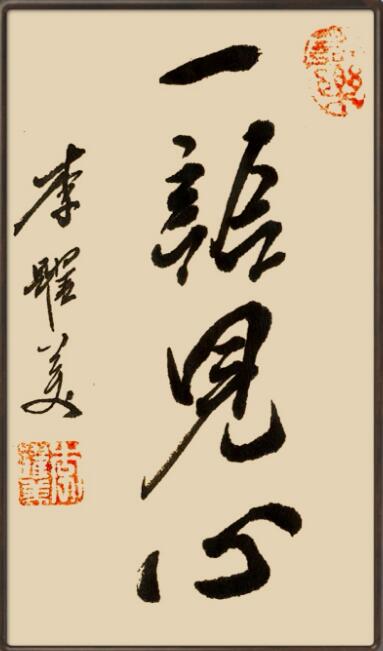 一語見心
李曜美